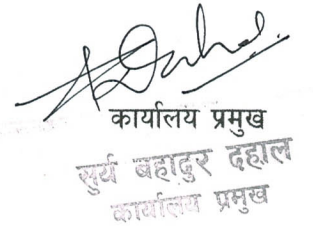 कार्यालय प्रमुख
सुर्य बहादुर दहाल
कार्यालय प्रमुख